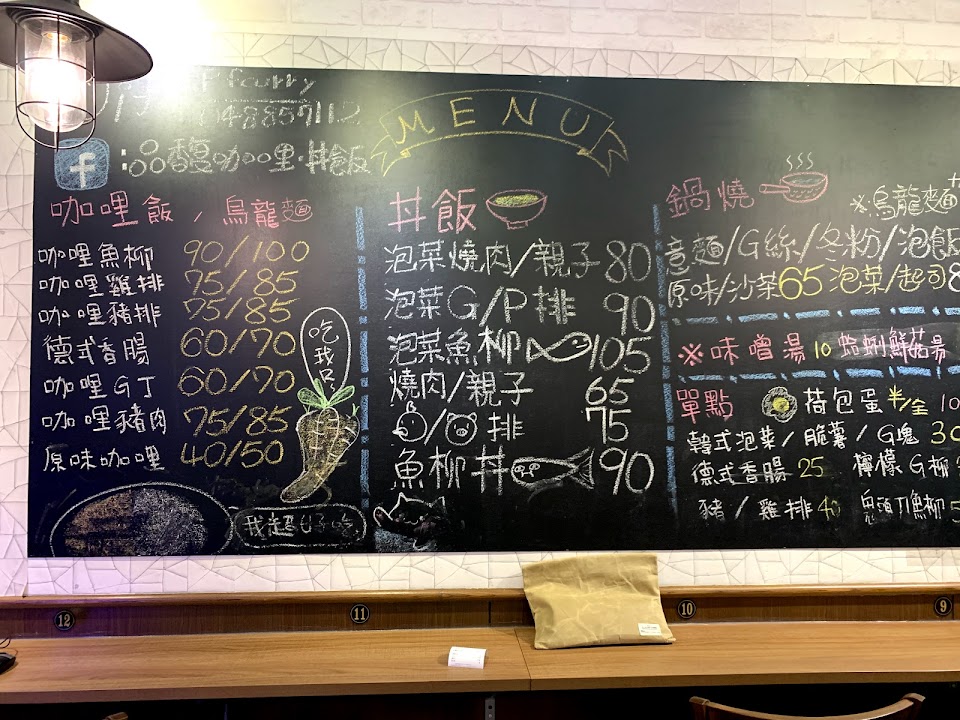 fcurry
MENU
f :品馥咖哩·丼飯
咖哩飯/烏龍麵
咖哩魚柳 90/100
咖哩雞排 75/85
咖哩豬排 75/85
德式香腸 60/70
咖哩GT 60/70
咖哩豬肉 75/85
原味咖哩 40/50
吃我吧
我超好吃
丼飯
泡菜燒肉/親子 80
泡菜G/P排 90
泡菜魚柳 105
燒肉/親子 65
/ 排 75
魚柳丼 90
鍋燒
※烏龍麵
意麵/G絲/冬粉/泡飯
原味/沙茶65 泡菜/起司8
※味噌湯10 蛤蜊鮮菇湯
單點 荷包蛋半/全 10
韓式泡菜/脆薯/G塊 30
德式香腸 25 檸檬G柳
豬/雞排 40 魚柳 5
12
11
10
9